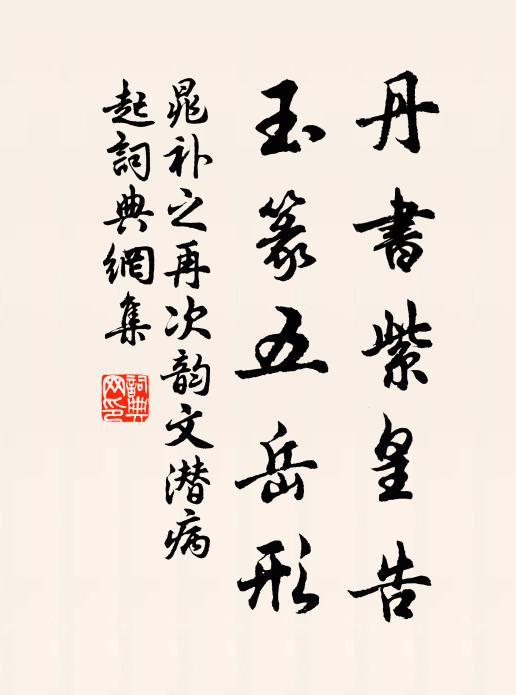 丹書紫皇告
玉篆五岳形
晁补之再次韵文潜病
起詞典網集
詞典網印